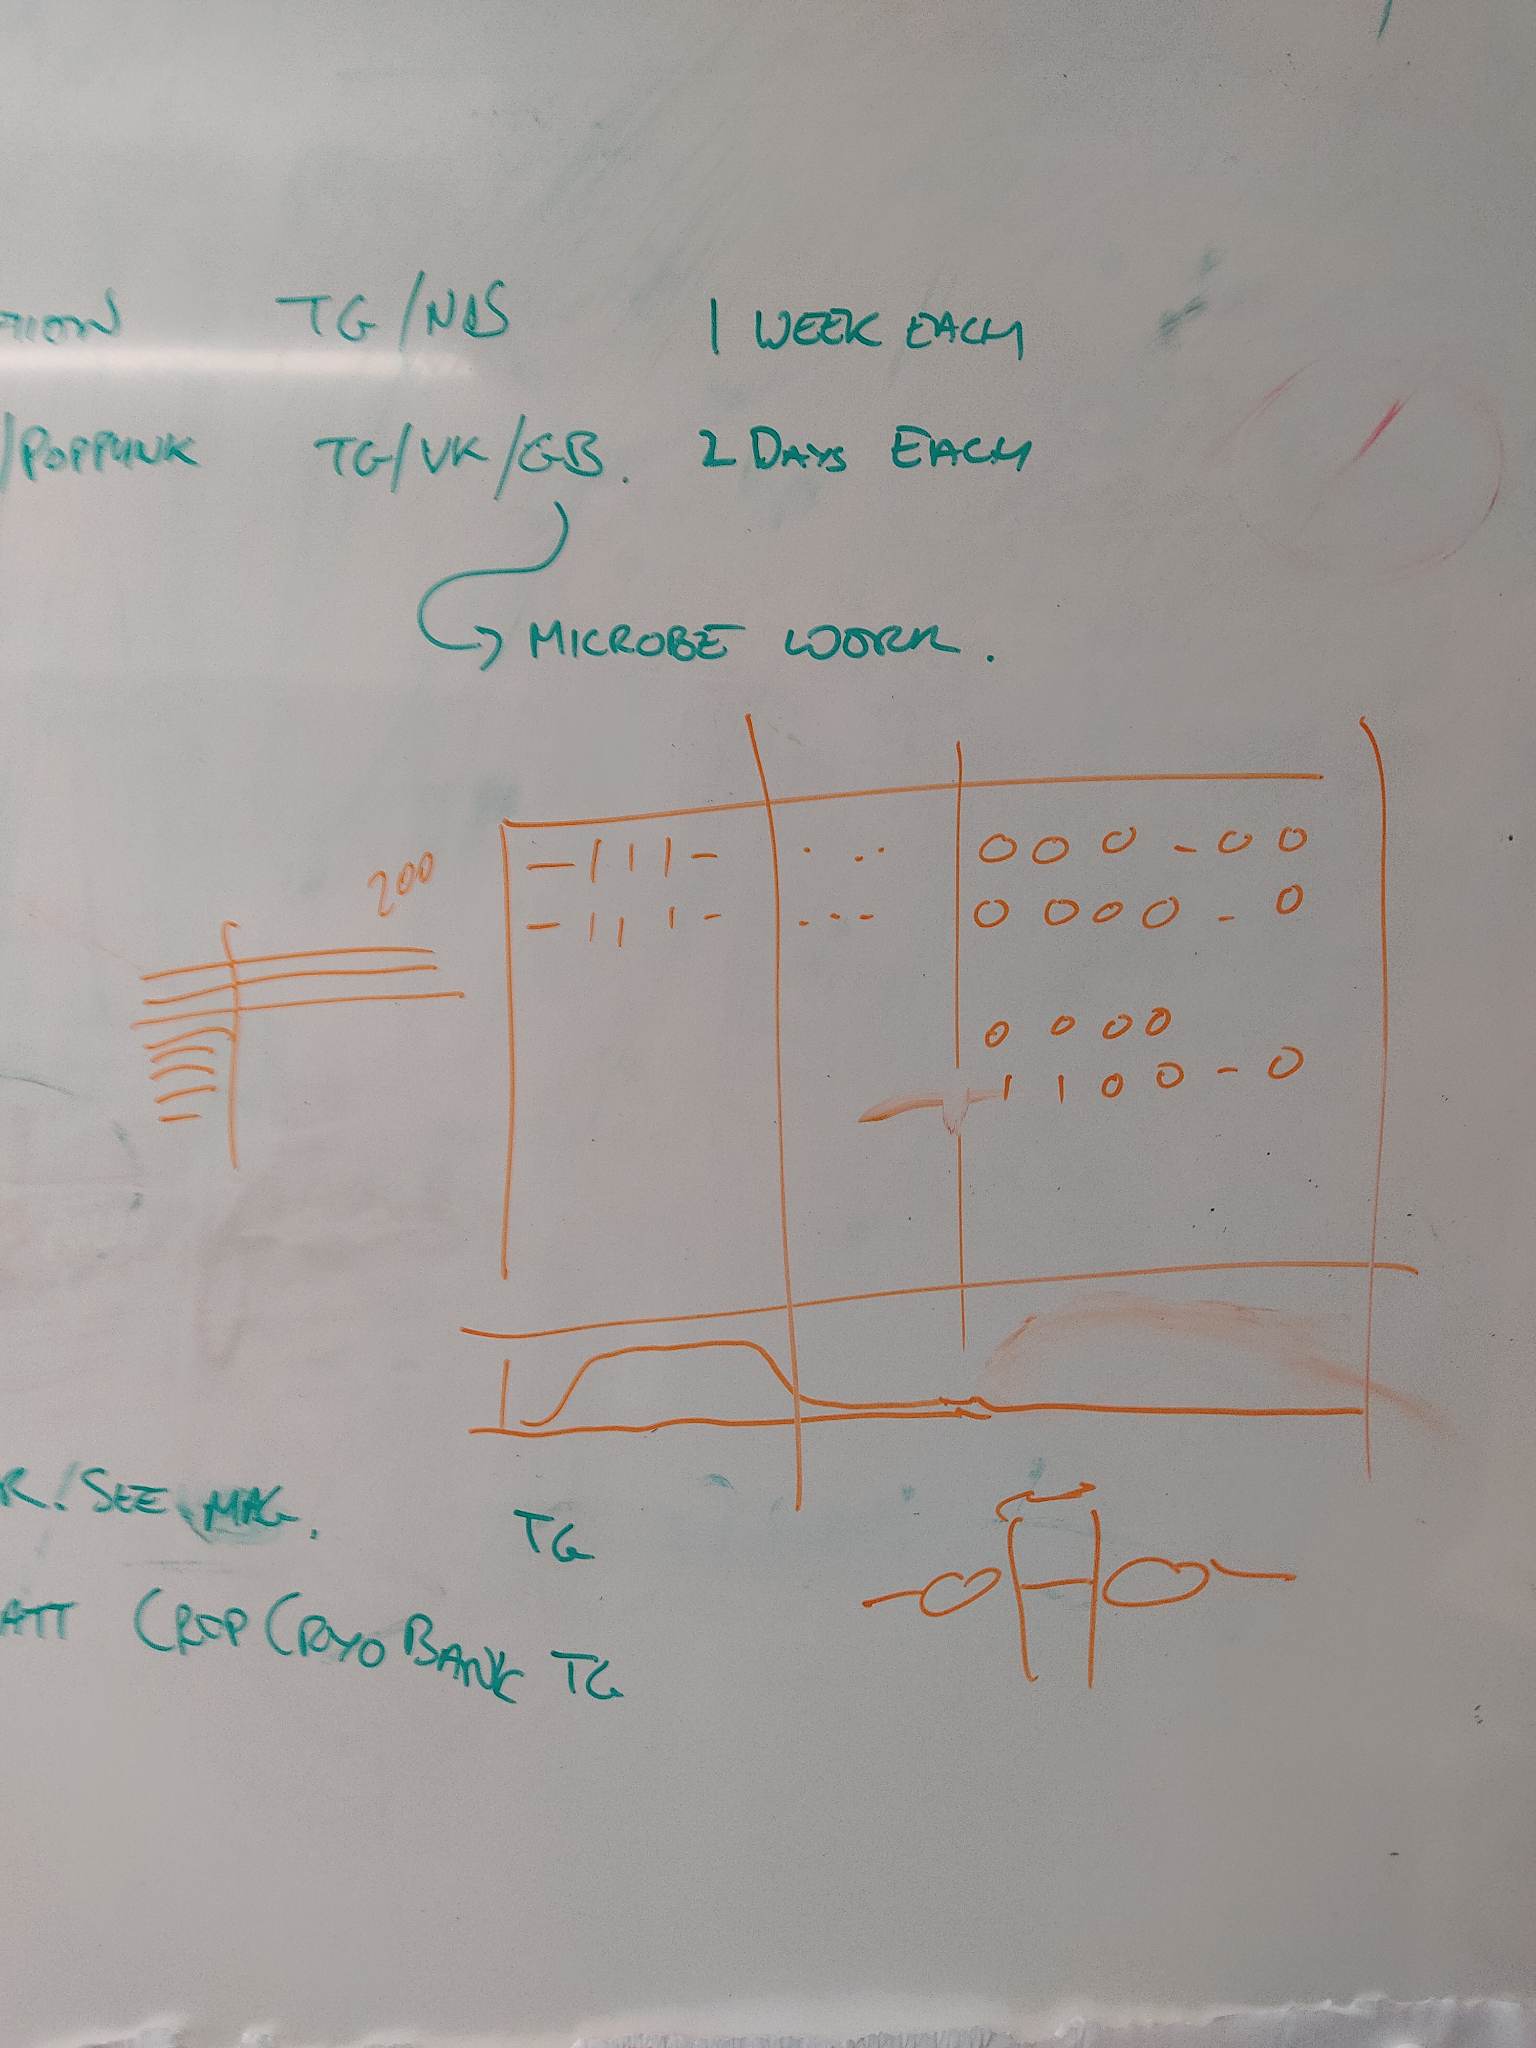 TG/NDS 1 WEEK EACH
/POPPUNK TG/VK/GB. 2 DAYS EACH
MICROBE WORK.
200
- 1 1 1 - . . . . 0 0 0 - 0 0
- 1 1 1 - . - - 0 0 0 0 - 0
0 0 0 0
1 1 0 0 - 0
R. SEE MAG. TG
ATT CROP CRYO BANK TG